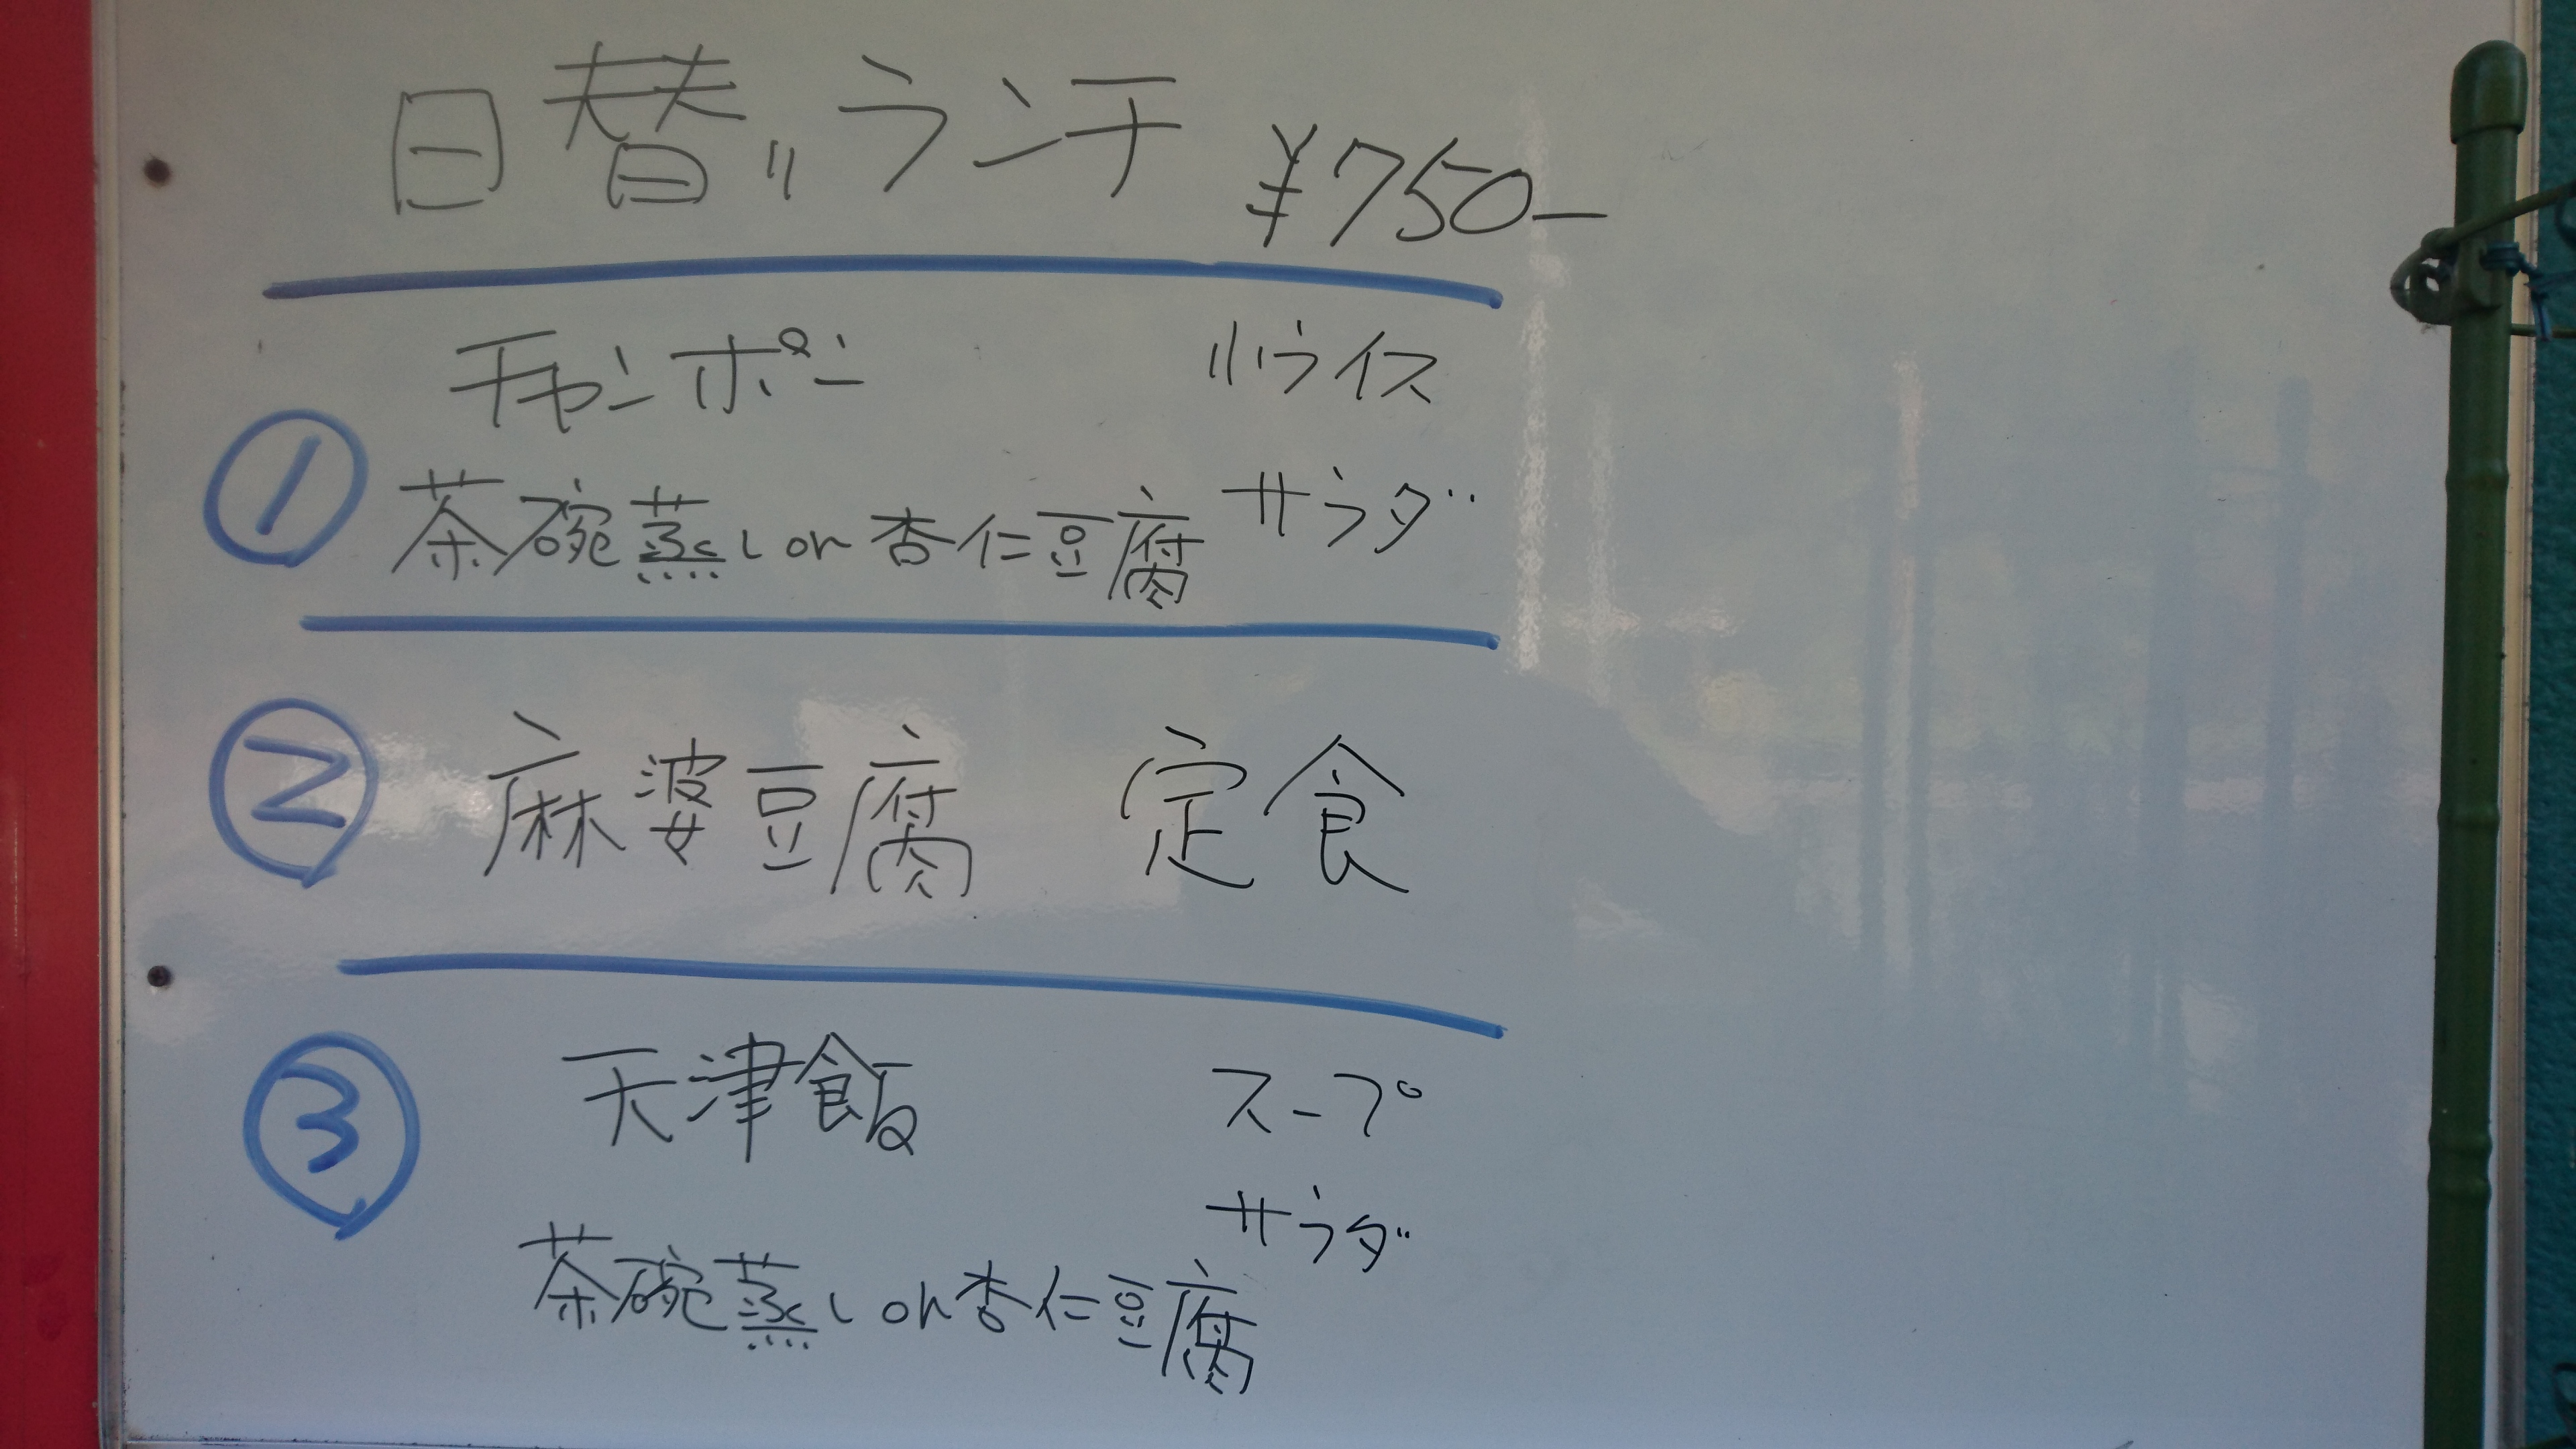 日替りランチ ¥750-
チャンポン 小ライス
① 茶碗蒸し or 杏仁豆腐 サラダ
② 麻婆豆腐 定食
③ 天津飯 スープ
サラダ
茶碗蒸し or 杏仁豆腐